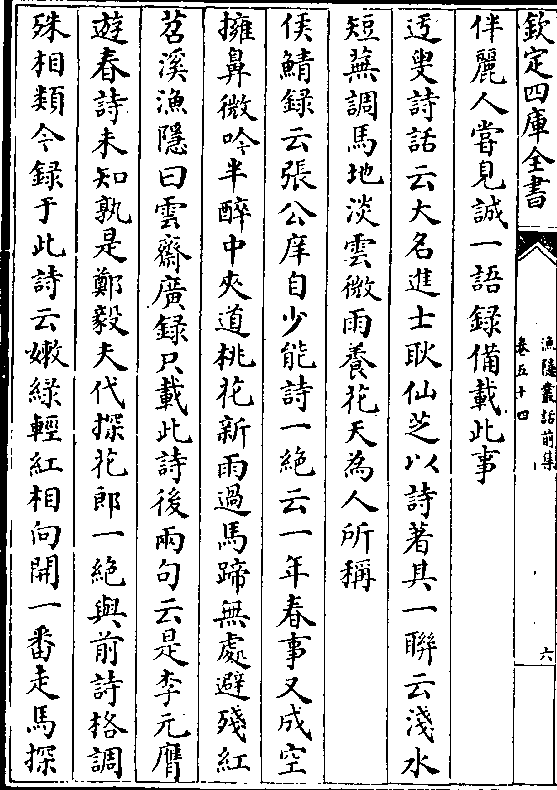 欽定四庫全書
漁隱叢話前集
卷五十四
六
伴麗人嘗見誠一語録備載此事
迂叟詩話云大名進士耿仙芝以詩著其一聯云淺水
短蕪調馬地淡雲微雨養花天為人所稱
侯鯖録云張公庠自少能詩一絶云一年春事又成空
擁鼻微吟半醉中夾道桃花新雨過馬蹄無處避殘紅
苕溪漁隱曰雲齋廣録只載此詩後兩句云是李元膺
遊春詩未知孰是鄭毅夫代探花郎一絶與前詩格調
殊相類今録于此詩云嫩緑輕紅相向開一番走馬探